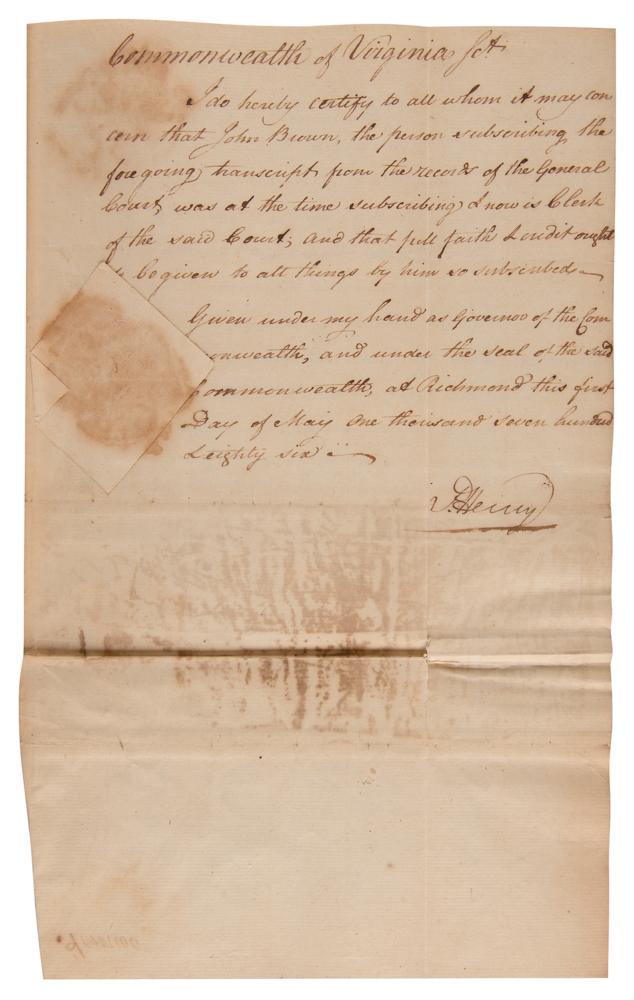 Commonwealth of Virginia Sct.
I do hereby certify to all whom it may con
cern that John Brown, the person subscribing the
foregoing transcript from the records of the General
Court, was at the time subscribing & now is Clerk
of the said Court; and that full faith & credit ought
to be given to all things by him so subscribed
Given under my hand as Governor of the Com
monwealth, and under the seal of the said
Commonwealth, at Richmond this first
Day of May one thousand seven hundred
& eighty six
P. Henry